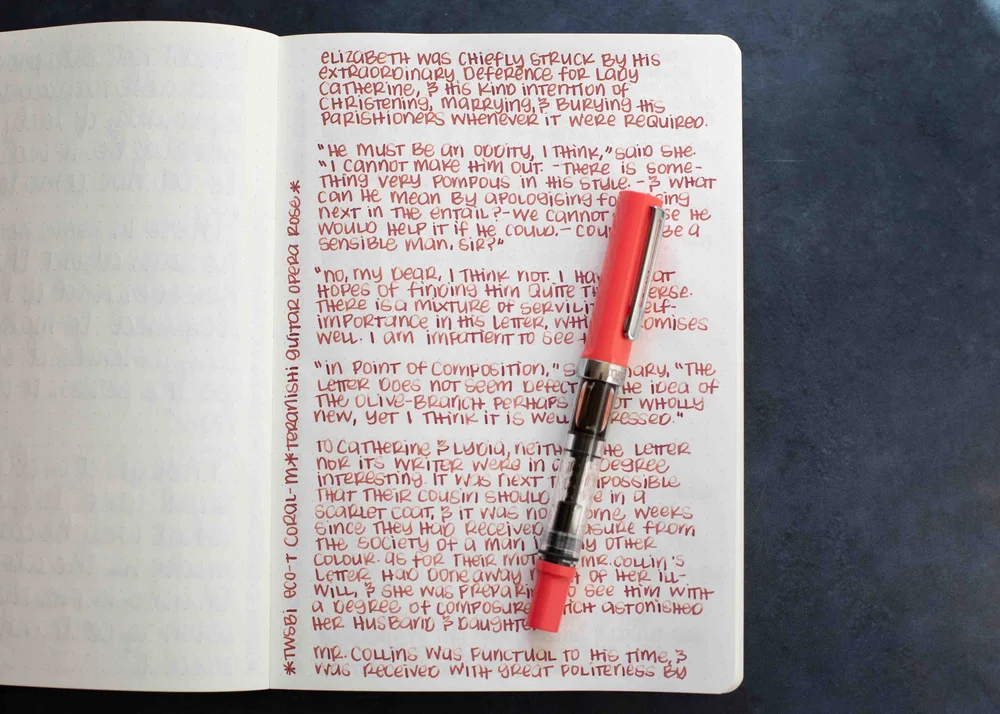 *TWSBI ECO-T CORAL-M*TERANISHI GUITAR OPERA ROSE*
ELIZABETH WAS CHIEFLY STRUCK BY HIS
EXTRAORDINARY DEFERENCE FOR LADY
CATHERINE, & HIS KIND INTENTION OF
CHRISTENING, MARRYING, & BURYING HIS
PARISHIONERS WHENEVER IT WERE REQUIRED.
"HE MUST BE AN ODDITY, I THINK," SAID SHE.
"I CANNOT MAKE HIM OUT. - THERE IS SOME-
THING VERY POMPOUS IN HIS STYLE. - & WHAT
CAN HE MEAN BY APOLOGISING FOR
NEXT IN THE ENTAIL?-WE CANNOT HE
WOULD HELP IT IF HE COULD.- BE A
SENSIBLE MAN, SIR?"
"NO, MY DEAR, I THINK NOT. I
HOPES OF FINDING HIM QUITE
THERE IS A MIXTURE OF
IMPORTANCE IN HIS LETTER,
WELL. I AM IMPATIENT TO SEE
"IN POINT OF COMPOSITION," "THE
LETTER DOES NOT SEEM IDEA OF
THE OLIVE-BRANCH PERHAPS WHOLLY
NEW, YET I THINK IT IS WELL
TO CATHERINE & LYDIA, LETTER
NOR ITS WRITER WERE IN DEGREE
INTERESTING. IT WAS NEXT IMPOSSIBLE
THAT THEIR COUSIN SHOULD IN A
SCARLET COAT, & IT WAS WEEKS
SINCE THEY HAD FROM
THE SOCIETY OF A MAN OTHER
COLOUR. AS FOR THEIR MR. COLLIN'S
LETTER HAD DONE AWAY OF HER ILL-
WILL, & SHE WAS SEE HIM WITH
A DEGREE OF COMPOSURE ASTONISHED
HER HUSBAND &
MR. COLLINS WAS PUNCTUAL TO HIS TIME, &
WAS RECEIVED WITH GREAT POLITENESS BY